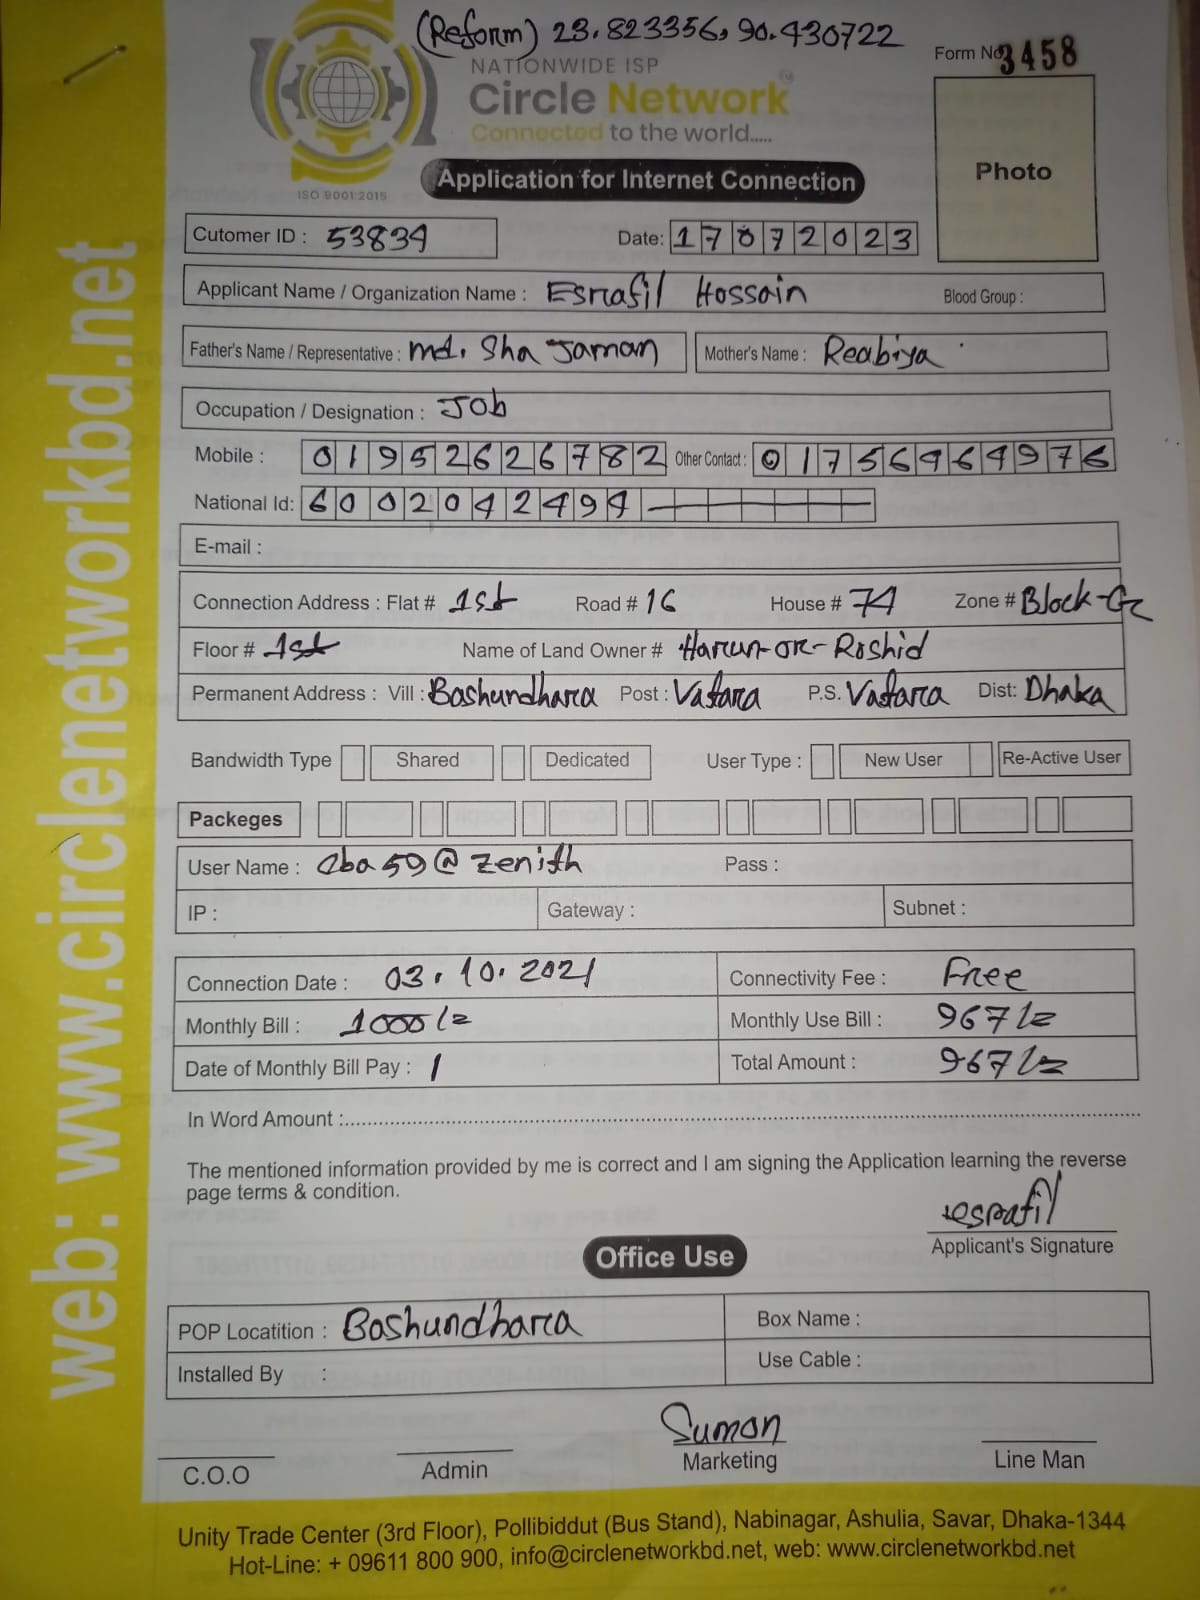 (Reform) 23.823356, 90.430722
NATIONWIDE ISP
Form No 3458
Circle Network
Connected to the world.....
ISO 9001:2015
Application for Internet Connection
Photo
web: www.circlenetworkbd.net
Cutomer ID : 53834
Date: 17072023
Applicant Name / Organization Name : Esrafil Hossain Blood Group :
Father's Name / Representative : md. Sha Jaman Mother's Name : Reabiya
Occupation / Designation : Job
Mobile : 01952626782 Other Contact : 01756964976
National Id: 6002042494
E-mail :
Connection Address : Flat # 1st Road # 16 House # 74 Zone # Block-G
Floor # 1st Name of Land Owner # Harun-or-Roshid
Permanent Address : Vill : Boshundhara Post : Vatara P.S. Vatara Dist: Dhaka
Bandwidth Type Shared Dedicated User Type : New User Re-Active User
Packeges
User Name : cba59@zenith Pass :
IP : Gateway : Subnet :
Connection Date : 03.10.2021 Connectivity Fee : Free
Monthly Bill : 1000/= Monthly Use Bill : 967/=
Date of Monthly Bill Pay : 1 Total Amount : 967/=
In Word Amount :
The mentioned information provided by me is correct and I am signing the Application learning the reverse
page terms & condition.
esrafil
Applicant's Signature
Office Use
POP Locatition : Boshundhara Box Name :
Installed By : Use Cable :
Sumon
C.O.O Admin Marketing Line Man
Unity Trade Center (3rd Floor), Pollibiddut (Bus Stand), Nabinagar, Ashulia, Savar, Dhaka-1344
Hot-Line: + 09611 800 900, info@circlenetworkbd.net, web: www.circlenetworkbd.net